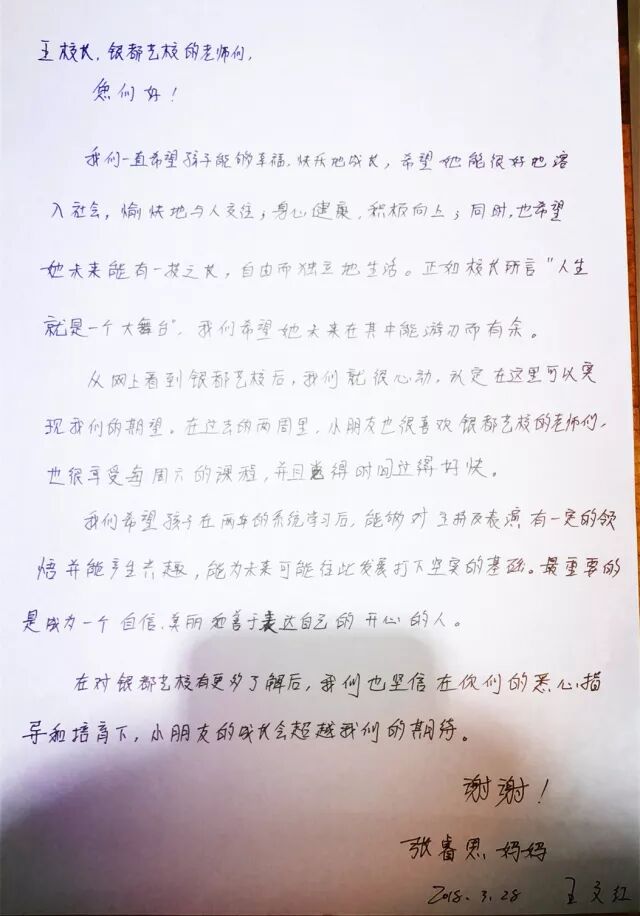 王校长，银都艺校的老师们，
您们好！
我们一直希望孩子能够幸福、快乐地成长，希望她能很好地溶
入社会，愉快地与人交往；身心健康，积极向上；同时，也希望
她未来能有一技之长，自由而独立地生活。正如校长所言“人生
就是一个大舞台”，我们希望她未来在其中能游刃而有余。
从网上看到银都艺校后，我们就很心动，认定在这里可以实
现我们的期望。在过去的两周里，小朋友也很喜欢银都艺校的老师们，
也很享受每周六的课程，并且觉得时间过得好快。
我们希望孩子在两年的系统学习后，能够对主持及表演有一定的领
悟并能产生兴趣，能为未来可能往此发展打下坚实的基础。最重要的
是成为一个自信、美丽和善于表达自己的开心的人。
在对银都艺校有更多了解后，我们也坚信在你们的悉心指
导和培育下，小朋友的成长会超越我们的期待。
谢谢！
张睿思妈妈
2018.3.28 王文红